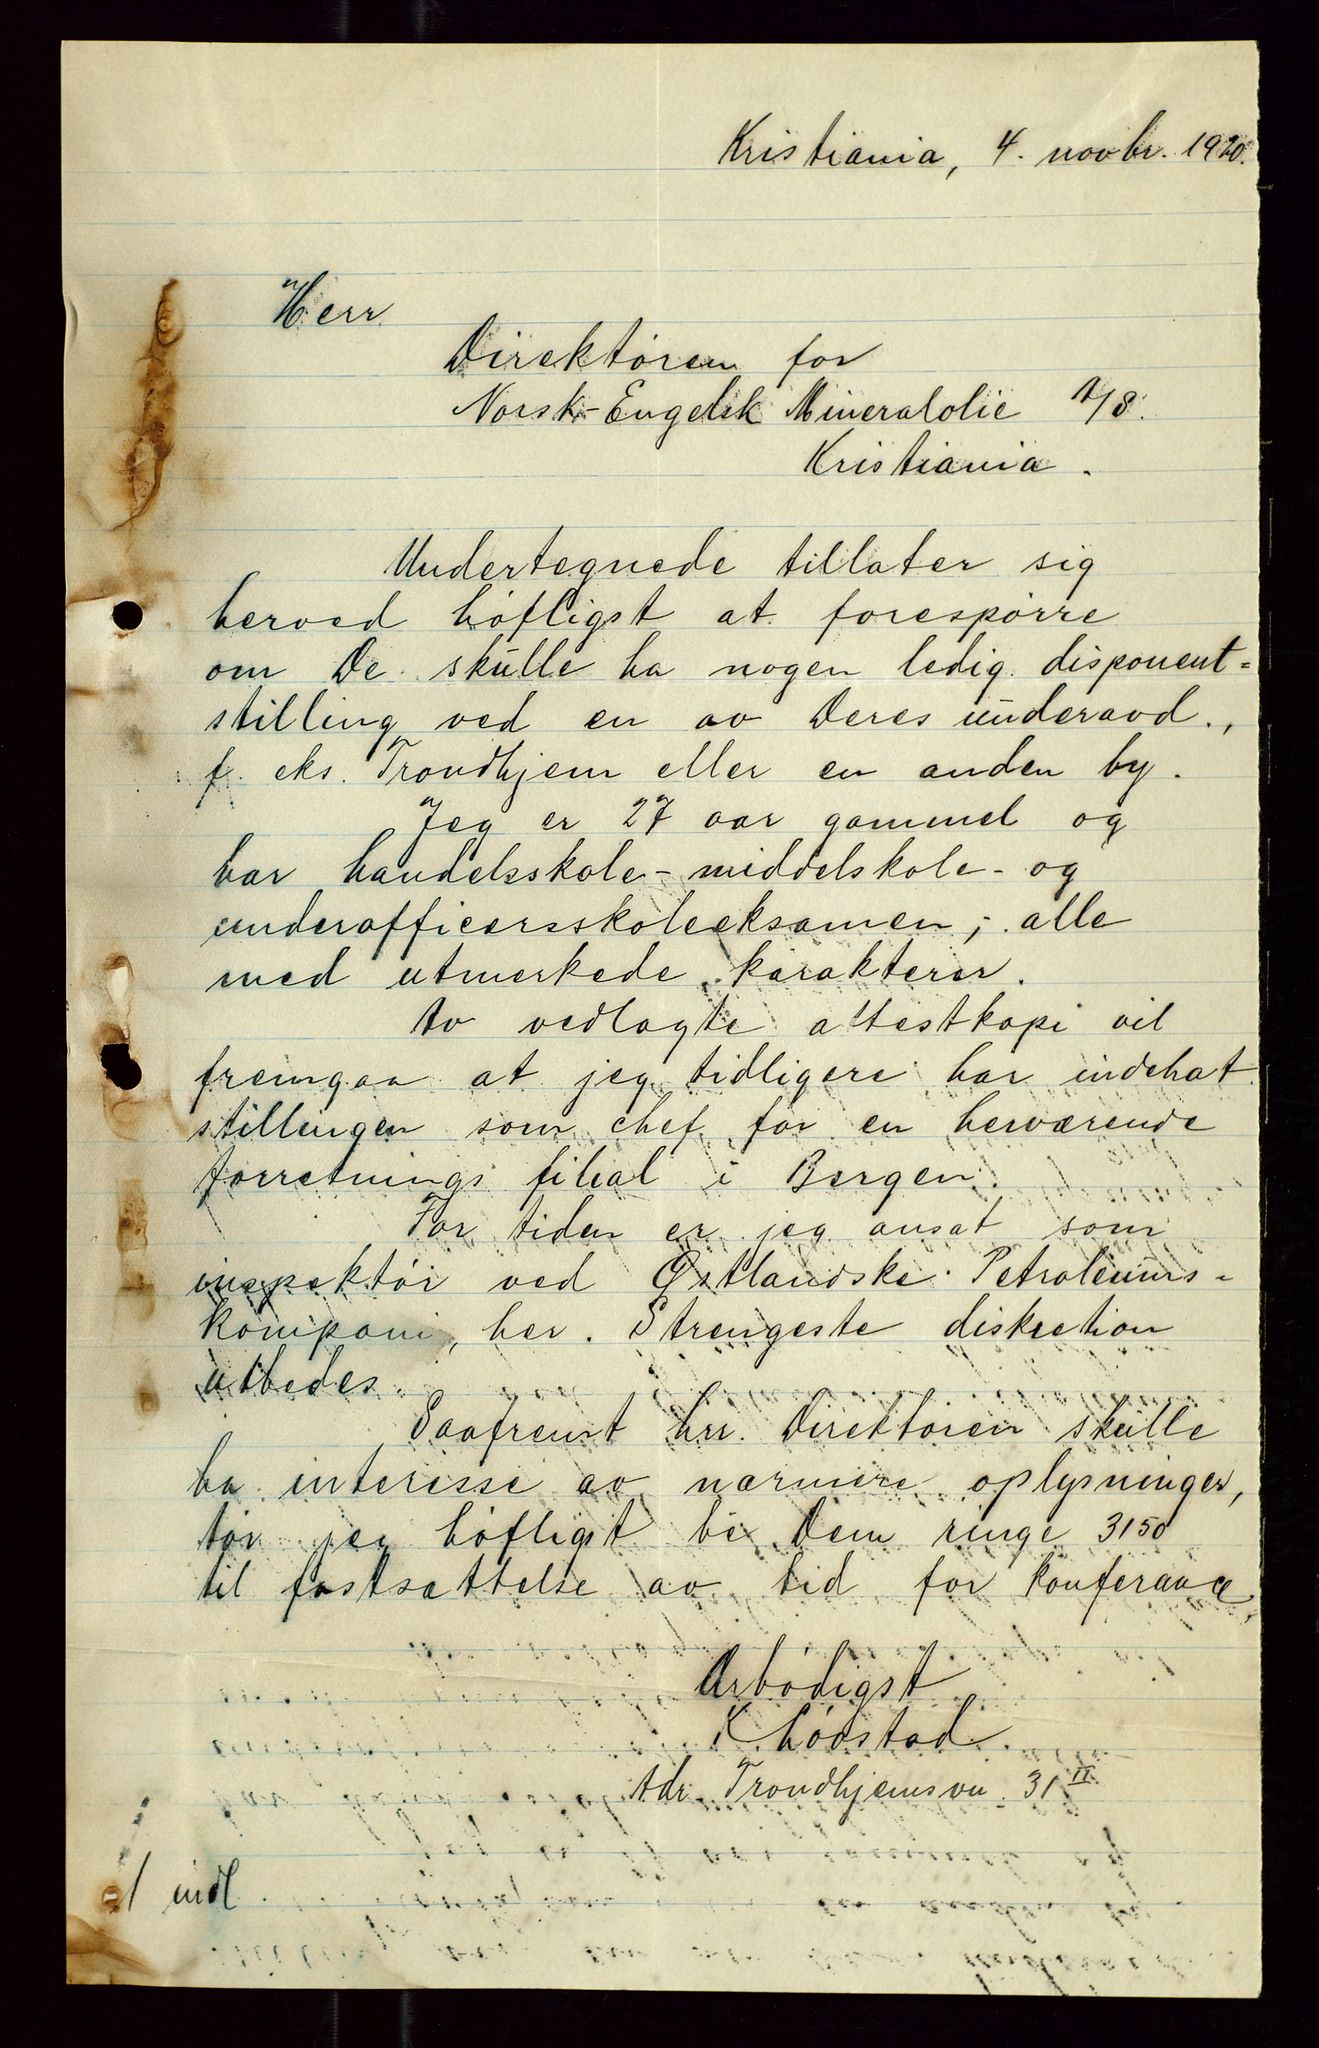 Kristiania, 4. novbr. 1920.
Herr
Direktøren for
Norsk-Engelsk Mineralolie A/S.
Kristiania.
Undertegnede tillater sig
herved høfligst at forespørre
om De skulle ha nogen ledig disponent-
stilling ved en av Deres underavd.,
f. eks. Trondhjem eller en anden by.
Jeg er 27 aar gammel og
har handelsskole- middelskole- og
underofficersskoleeksamen,- alle
med utmerkede karakterer.
Av vedlagte attestkopi vil
fremgaa at jeg tidligere har indehat
stillingen som chef for en herværende
forretnings filial i Bergen.
For tiden er jeg ansat som
inspektør ved Østlandske Petroleums-
kompani, her. Strengeste diskretion
utbedes.
Saafremt hrr. Direktøren skulle
ha interesse av nærmere oplysninger,
tør jeg høfligst be Dem ringe 3150
til fastsættelse av tid for konferance.
Ærbødigst
K Løvstad
Adr. Trondhjemsvn. 31 II
1 indl